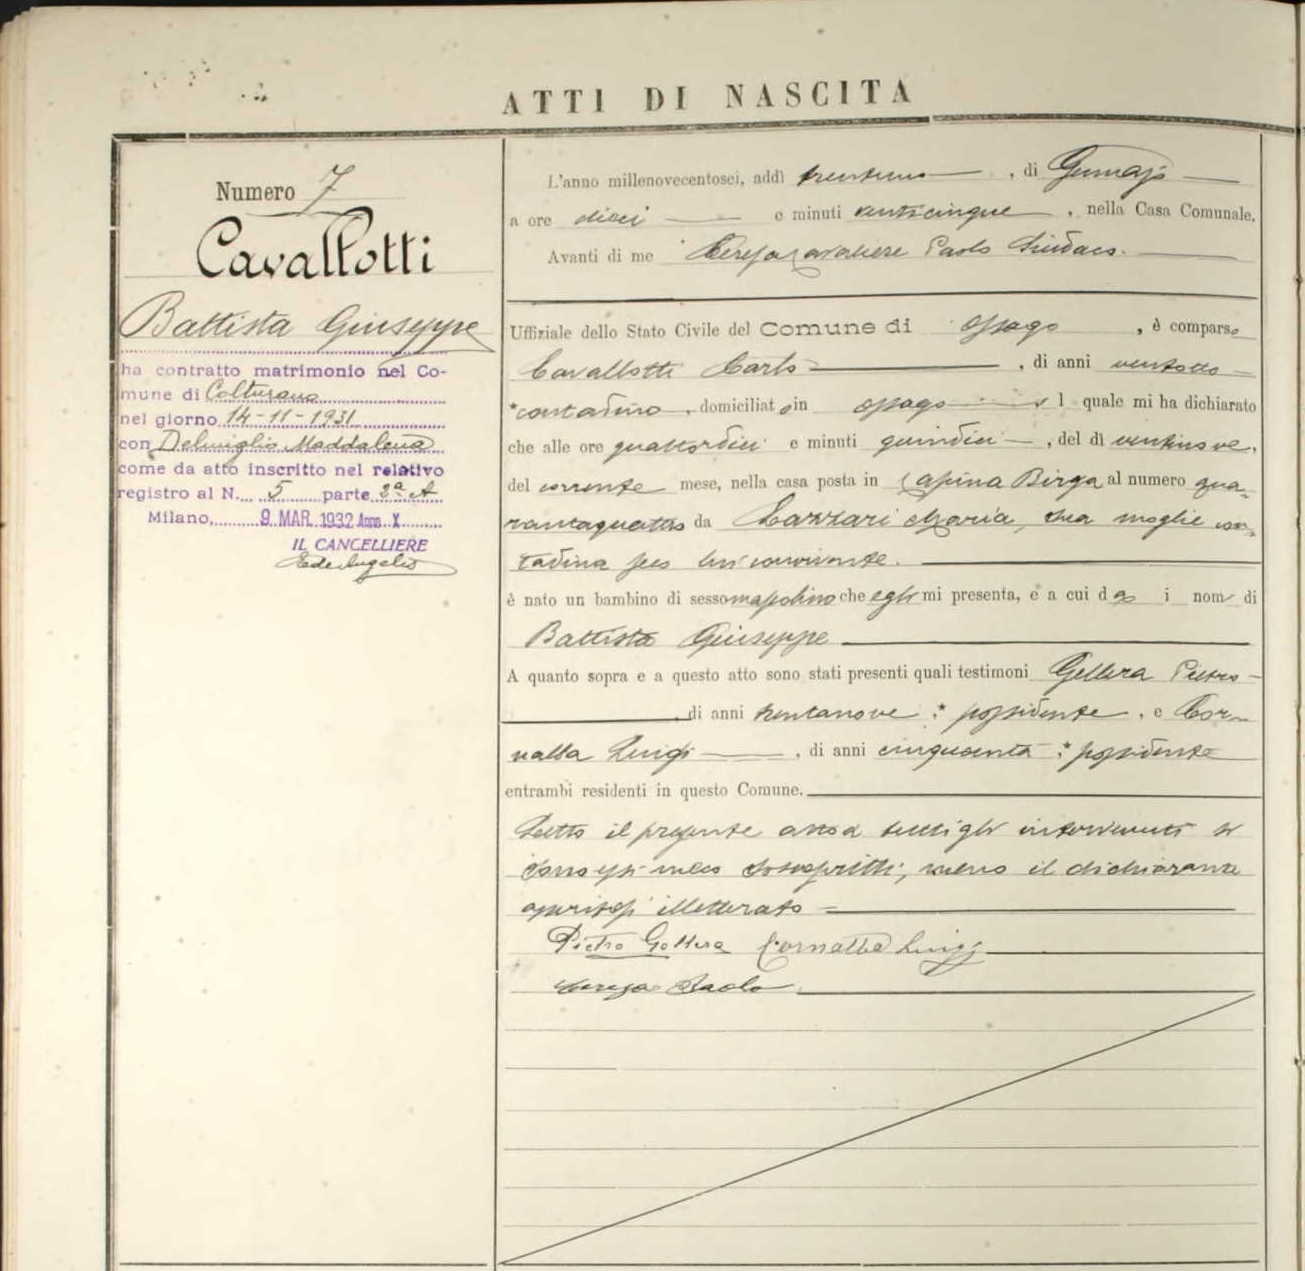 ATTI DI NASCITA
Numero 7
Cavallotti
Battista Giuseppe
ha contratto matrimonio nel Co-
mune di Colturano
nel giorno 14-11-1931
con Delmiglio Maddalena
come da atto inscritto nel relativo
registro al N. 5 parte 2ª A
Milano, 9 MAR. 1932 Anno X
IL CANCELLIERE
L'anno millenovecentosei, addì trentuno, di Gennajo
a ore dieci e minuti venticinque, nella Casa Comunale.
Avanti di me Ceresa Cavaliere Paolo Sindaco.
Uffiziale dello Stato Civile del Comune di Ossago, è comparso
Cavallotti Carlo, di anni ventotto
contadino, domiciliato in Ossago il quale mi ha dichiarato
che alle ore quattordici e minuti quindici, del dì ventinove,
del corrente mese, nella casa posta in Cassina Birga al numero qua-
rantaquattro da Lazzari Maria, sua moglie con-
tadina seco lui convivente.
è nato un bambino di sesso mascolino che egli mi presenta, e a cui dà i nomi di
Battista Giuseppe
A quanto sopra e a questo atto sono stati presenti quali testimoni Gellera Pietro
, di anni trentanove, possidente, e Cor-
nalba Luigi, di anni cinquanta, possidente
entrambi residenti in questo Comune.
Letto il presente atto a tutti gli intervenuti si
sono essi meco sottoscritti, meno il dichiarante
illetterato
Pietro Gellera Cornalba Luigi
Ceresa Paolo